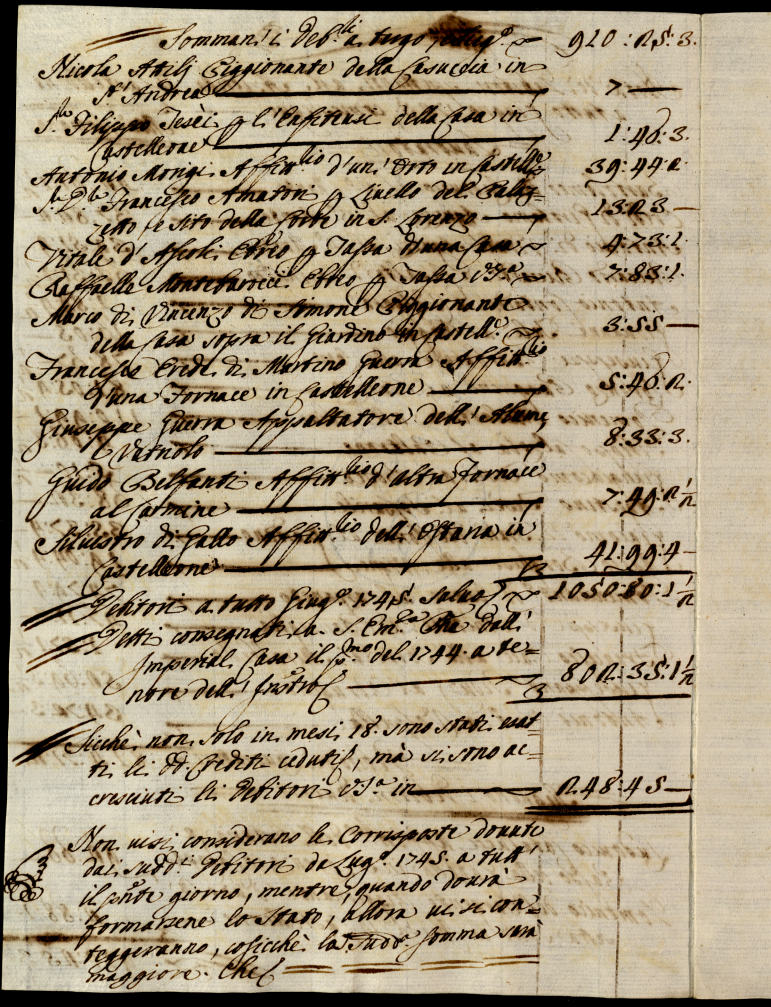 Sommano li deb.li a tergo 920:25:3.
Nicola Attilj Piggionante della Casuccia in
S. Andrea 7
Sr. Filippo Tesei p l'Enfiteusi della Casa in
Castelleone 1:46:3.
Antonio Morigi Affitt.rio d'un' Orto in Castell.e 39:44:2
Sr. Francesco Amatori p Livello del Palaz-
zetto, e sito della Corte in S. Lorenzo 13:23
Vitale d'Ascoli Ebreo p Tassa d'una Casa 4:73:1.
Raffaelle Montebarocci Ebreo p Tassa 7:83:1.
Marco di Vincenzo di Simone Piggionante
della Casa sopra il Giardino in Castell.e 3:55
Francesco Erede di Martino Guerra Affitt.rio
d'una Fornace in Castelleone 5:46:2.
Giuseppe Guerra Appaltatore dell'Alume
e Vetriolo 8:33:3.
Guido Belfanti Affitt.rio d'altra Fornace
al Carmine 7:49:2½
Silvestro di Gallo Affitt.rio dell'Ostaria in
Castelleone 41:99:4
Debitori a tutto Giug.o 1745. Salvo 1050:80:1½
Detti consegnati a S. Em.za dall'
Imperial Casa il p.mo del 1744. a te=
nore dell' 802:35:1½
Sicchè non solo in mesi 18. sono stati esat=
ti li dd. Crediti ceduti, mà si sono ac=
cresciuti li Debitori in 248:45
Non visi considerano le Corrisposte dovute
dai sudd.i Debitori da Lug.o 1745. a tutt'
il pnte giorno, mentre, quando dovrà
formarsene lo Stato, allora visi con=
teggeranno, cosicchè la sudd.a somma sarà
maggiore. Che